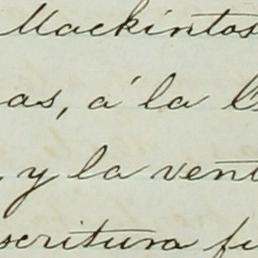 Mackintos
as, á la C
, y la vent
scritura fu